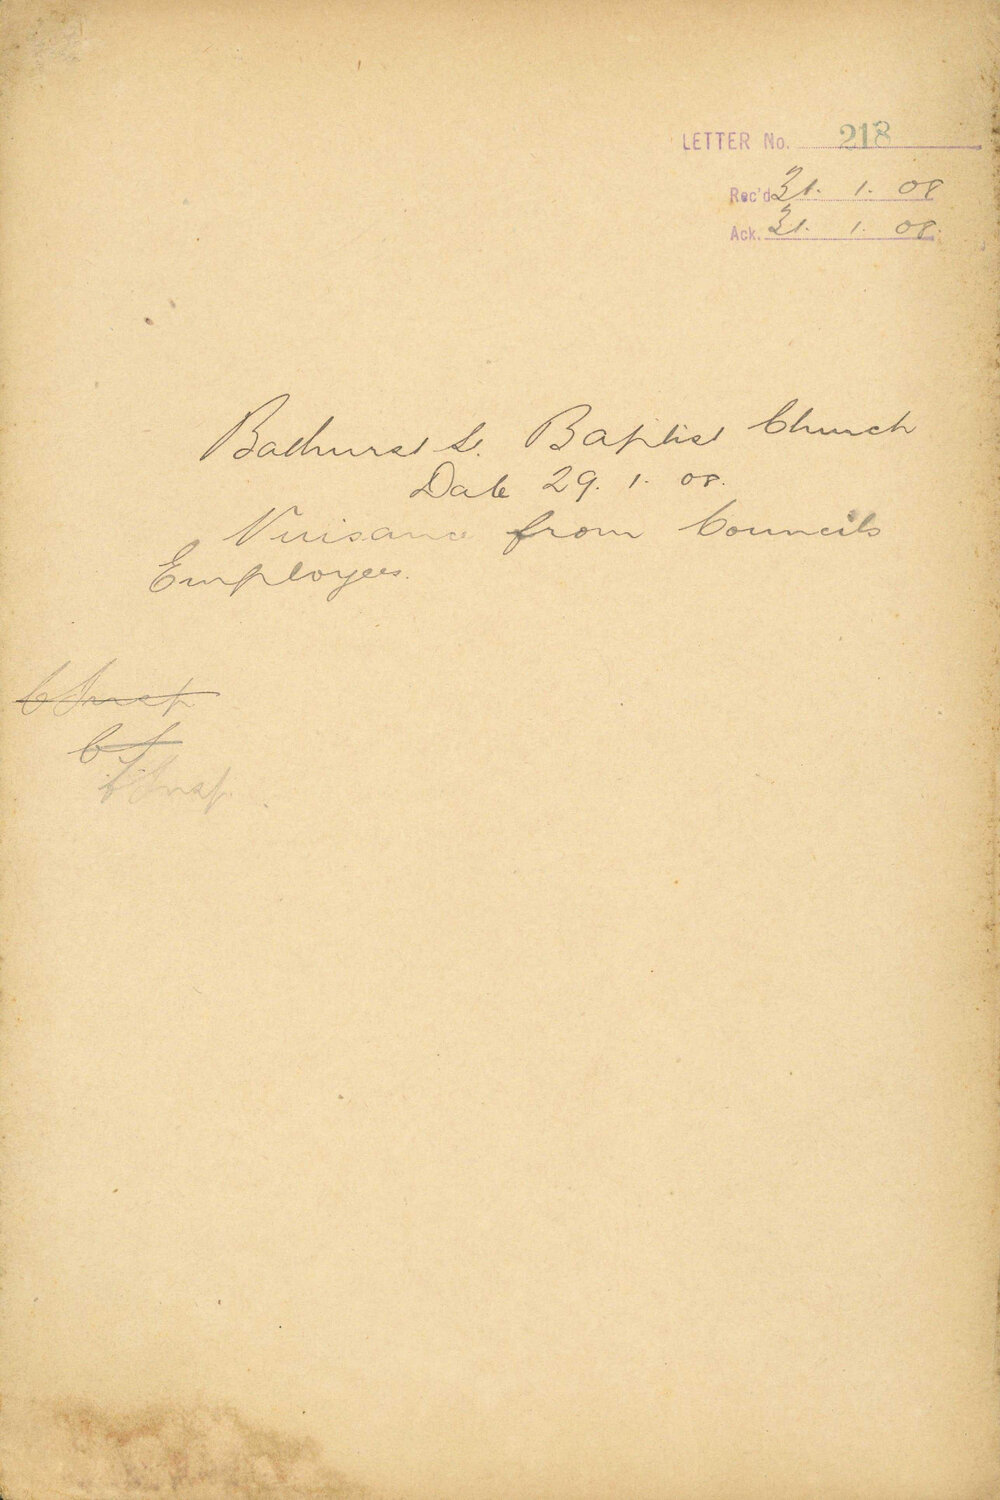 LETTER No. 218
Rec'd 31. 1. 08
Ack. 31. 1. 08.
Bathurst St. Baptist Church
Date 29. 1. 08.
Nuisance from Councils
Employees.
C Insp
C I
C Insp.